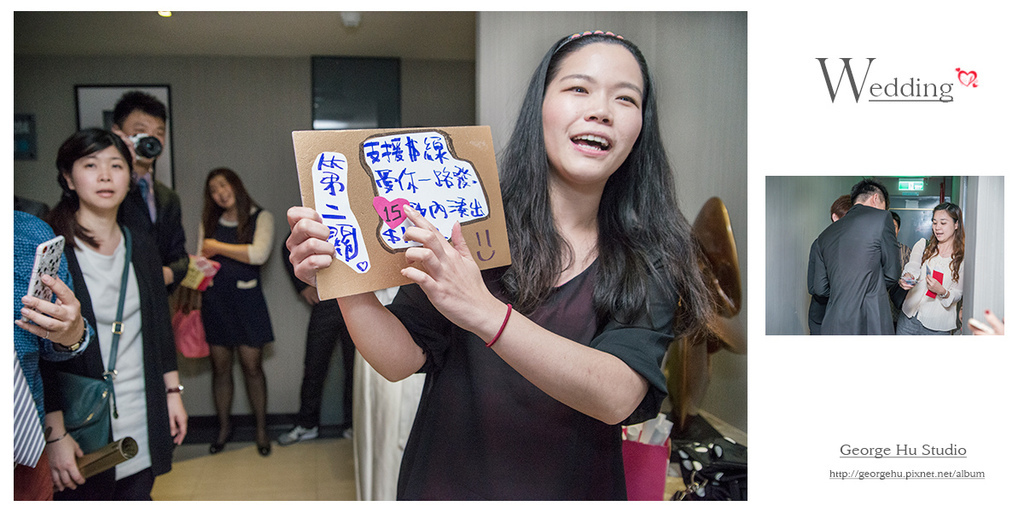 第二關
支援前線
憂你一路發
15秒內湊出
Wedding
George Hu Studio
http://georgehu.pixnet.net/album